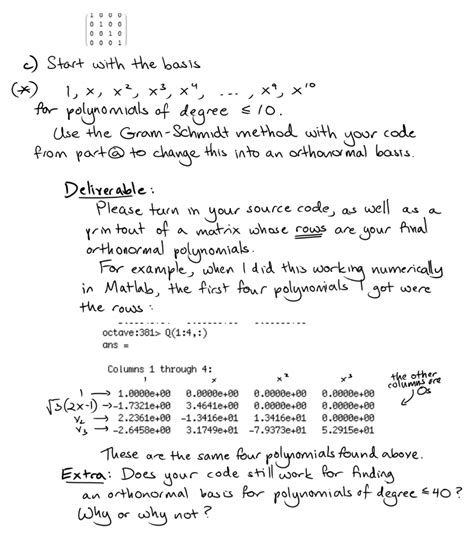 1 0 0 0
0 1 0 0
0 0 1 0
0 0 0 1
c) Start with the basis
(*) 1, x, x², x³, x⁴, ..., x⁹, x¹⁰
for polynomials of degree ≤ 10.
Use the Gram-Schmidt method with your code
from part ⓐ to change this into an orthonormal basis.
Deliverable:
Please turn in your source code, as well as a
printout of a matrix whose rows are your final
orthonormal polynomials.
For example, when I did this working numerically
in Matlab, the first four polynomials I got were
the rows:
octave:381> Q(1:4,:)
ans =
Columns 1 through 4:
1 x x² x³
the other columns are 0s
1 → 1.0000e+00 0.0000e+00 0.0000e+00 0.0000e+00
√3(2x-1) → -1.7321e+00 3.4641e+00 0.0000e+00 0.0000e+00
v₂ → 2.2361e+00 -1.3416e+01 1.3416e+01 0.0000e+00
v₃ → -2.6458e+00 3.1749e+01 -7.9373e+01 5.2915e+01
These are the same four polynomials found above.
Extra: Does your code still work for finding
an orthonormal basis for polynomials of degree ≤ 40?
Why or why not?